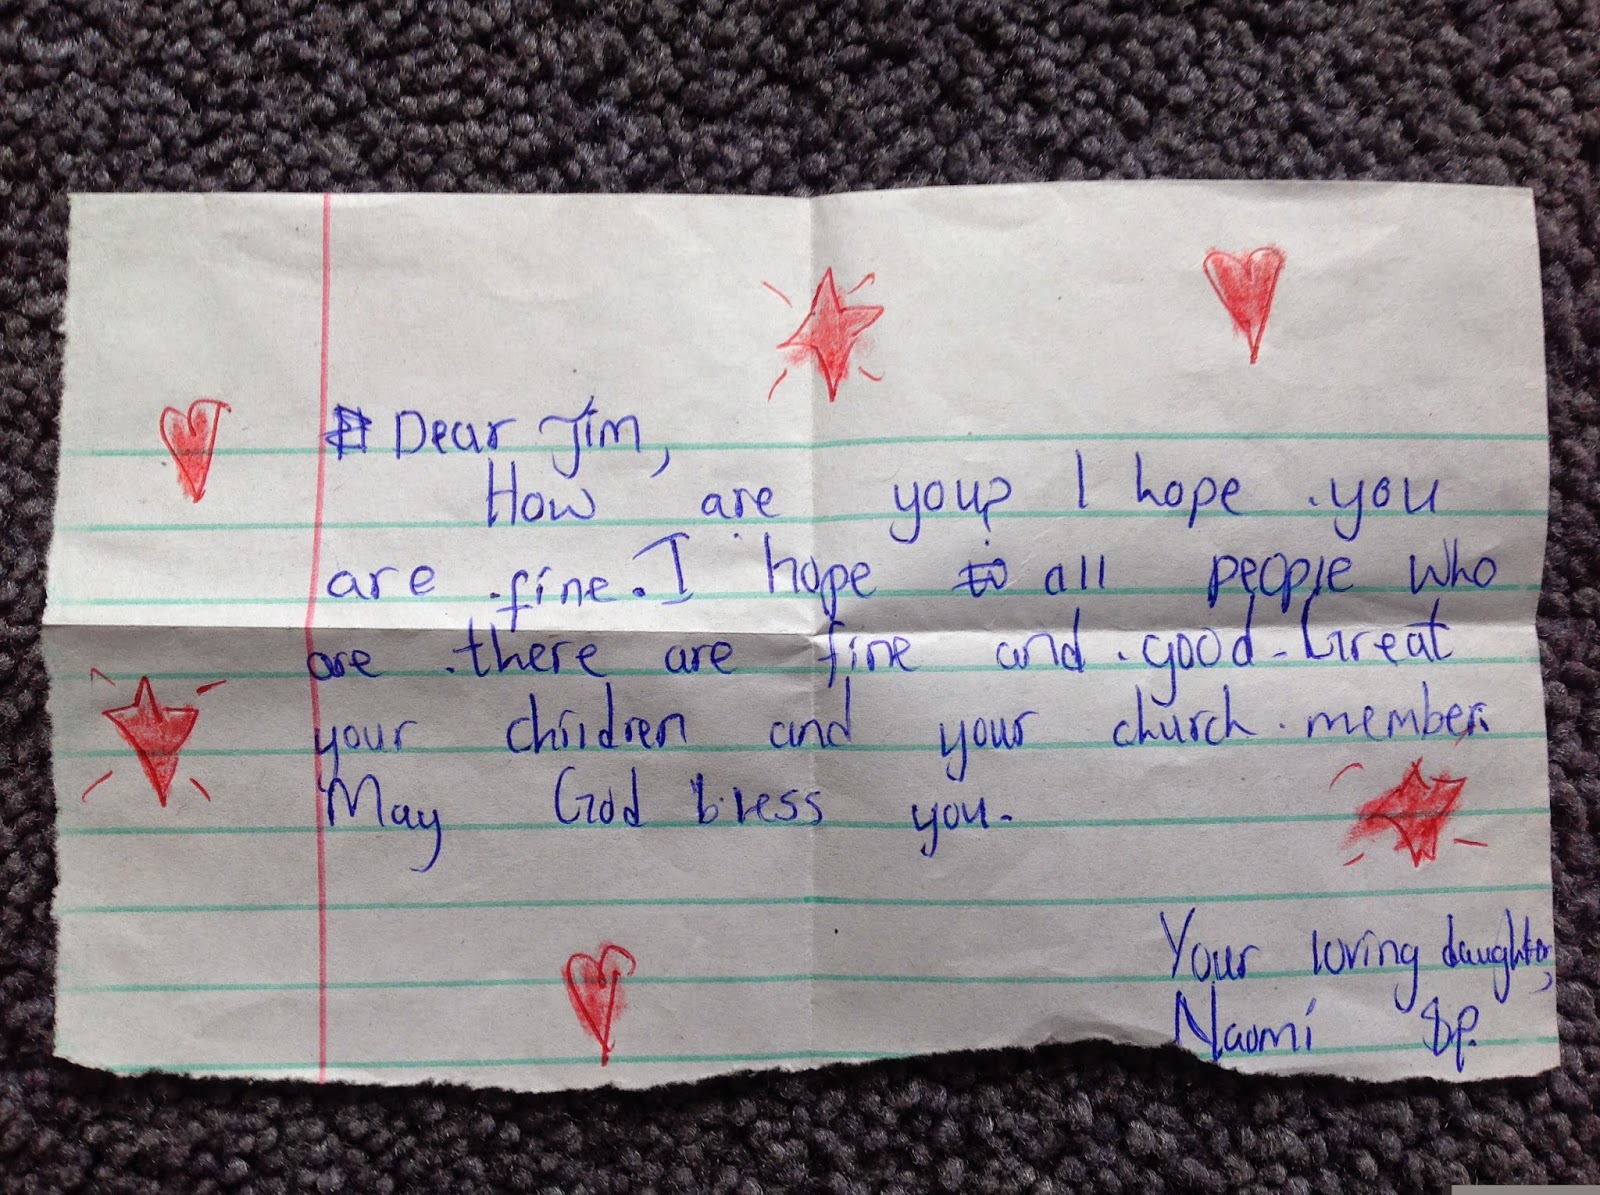 Dear Jim,
How are you? I hope you
are fine. I hope to all people who
are there are fine and good. Great
your children and your church member.
May God bless you.
Your loving daughter,
Naomi